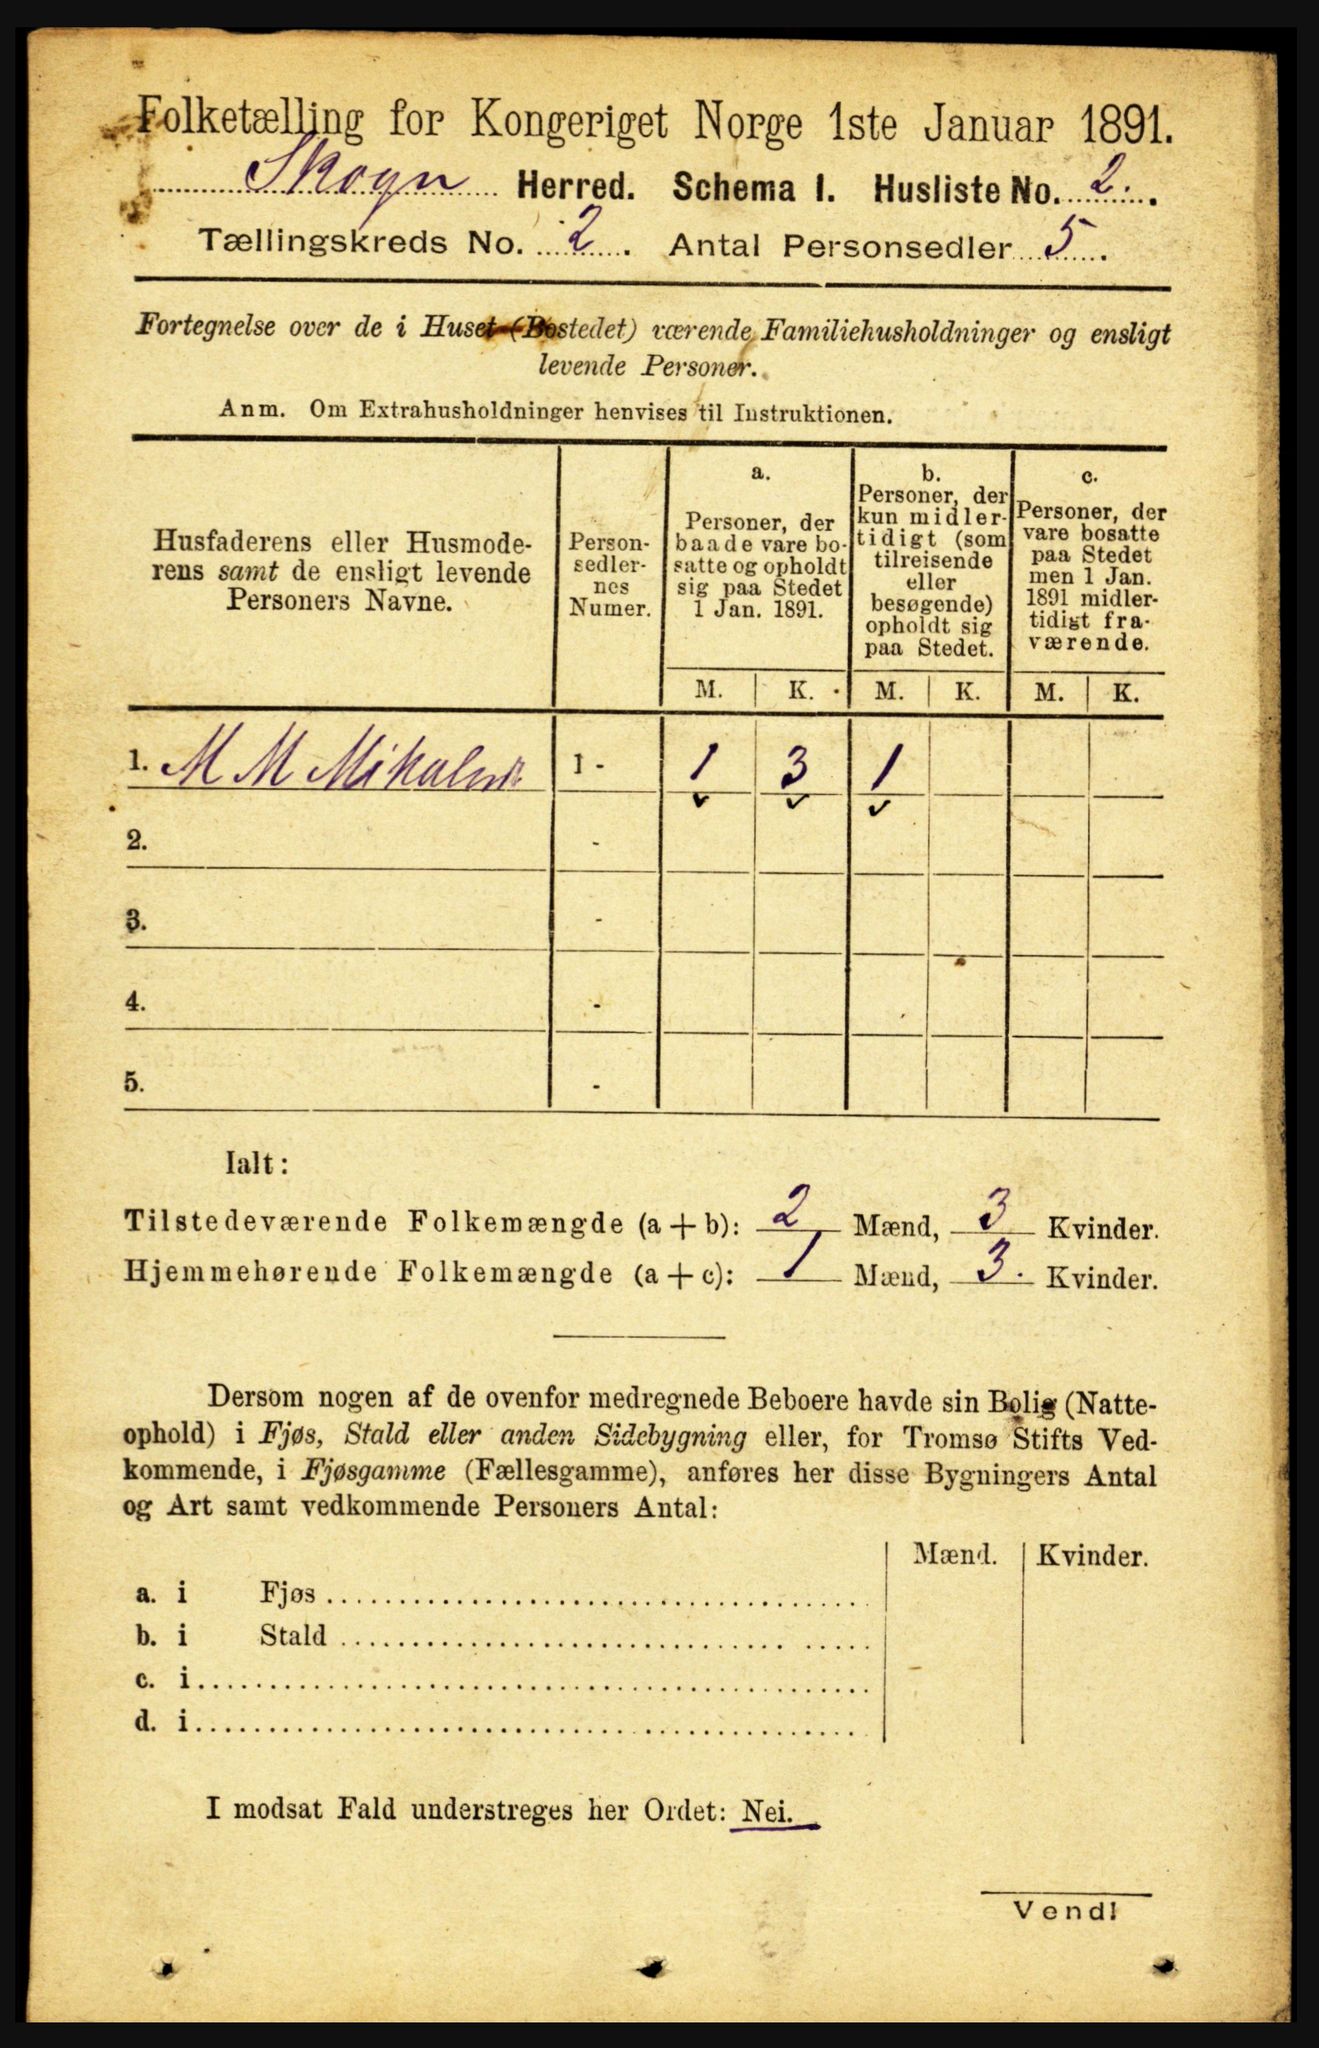 Folketælling for Kongeriget Norge 1ste Januar 1891.
Skogn Herred. Schema 1. Husliste No. 2.
Tællingskreds No. 2. Antal Personsedler 5.
Fortegnelse over de i Huset (Bostedet) værende Familiehusholdninger og ensligt
levende Personer.
Anm. Om Extrahusholdninger henvises til Instruktionen.
Husfaderens eller Husmode-
rens samt de ensligt levende
Personers Navne.
Person-
sedler-
nes
Numer.
a.
Personer, der
baade vare bo-
satte og opholdt
sig paa Stedet
1 Jan. 1891.
b.
Personer, der
kun midler-
tidigt (som
tilreisende
eller
besøgende)
opholdt sig
paa Stedet.
c.
Personer, der
vare bosatte
paa Stedet
men 1 Jan.
1891 midler-
tidigt fra-
værende.
M. K. M. K. M. K.
1. M M 1 - 1 3 1
2. -
3. -
4. -
5. -
Ialt:
Tilstedeværende Folkemængde (a + b): 2 Mænd, 3 Kvinder.
Hjemmehørende Folkemængde (a + c): 1 Mænd, 3. Kvinder.
Dersom nogen af de ovenfor medregnede Beboere havde sin Bolig (Natte-
ophold) i Fjøs, Stald eller anden Sidebygning eller, for Tromsø Stifts Ved-
kommende, i Fjøsgamme (Fællesgamme), anføres her disse Bygningers Antal
og Art samt vedkommende Personers Antal:
Mænd. Kvinder.
a. i Fjøs
b. i Stald
c. i
d. i
I modsat Fald understreges her Ordet: Nei.
Vend!